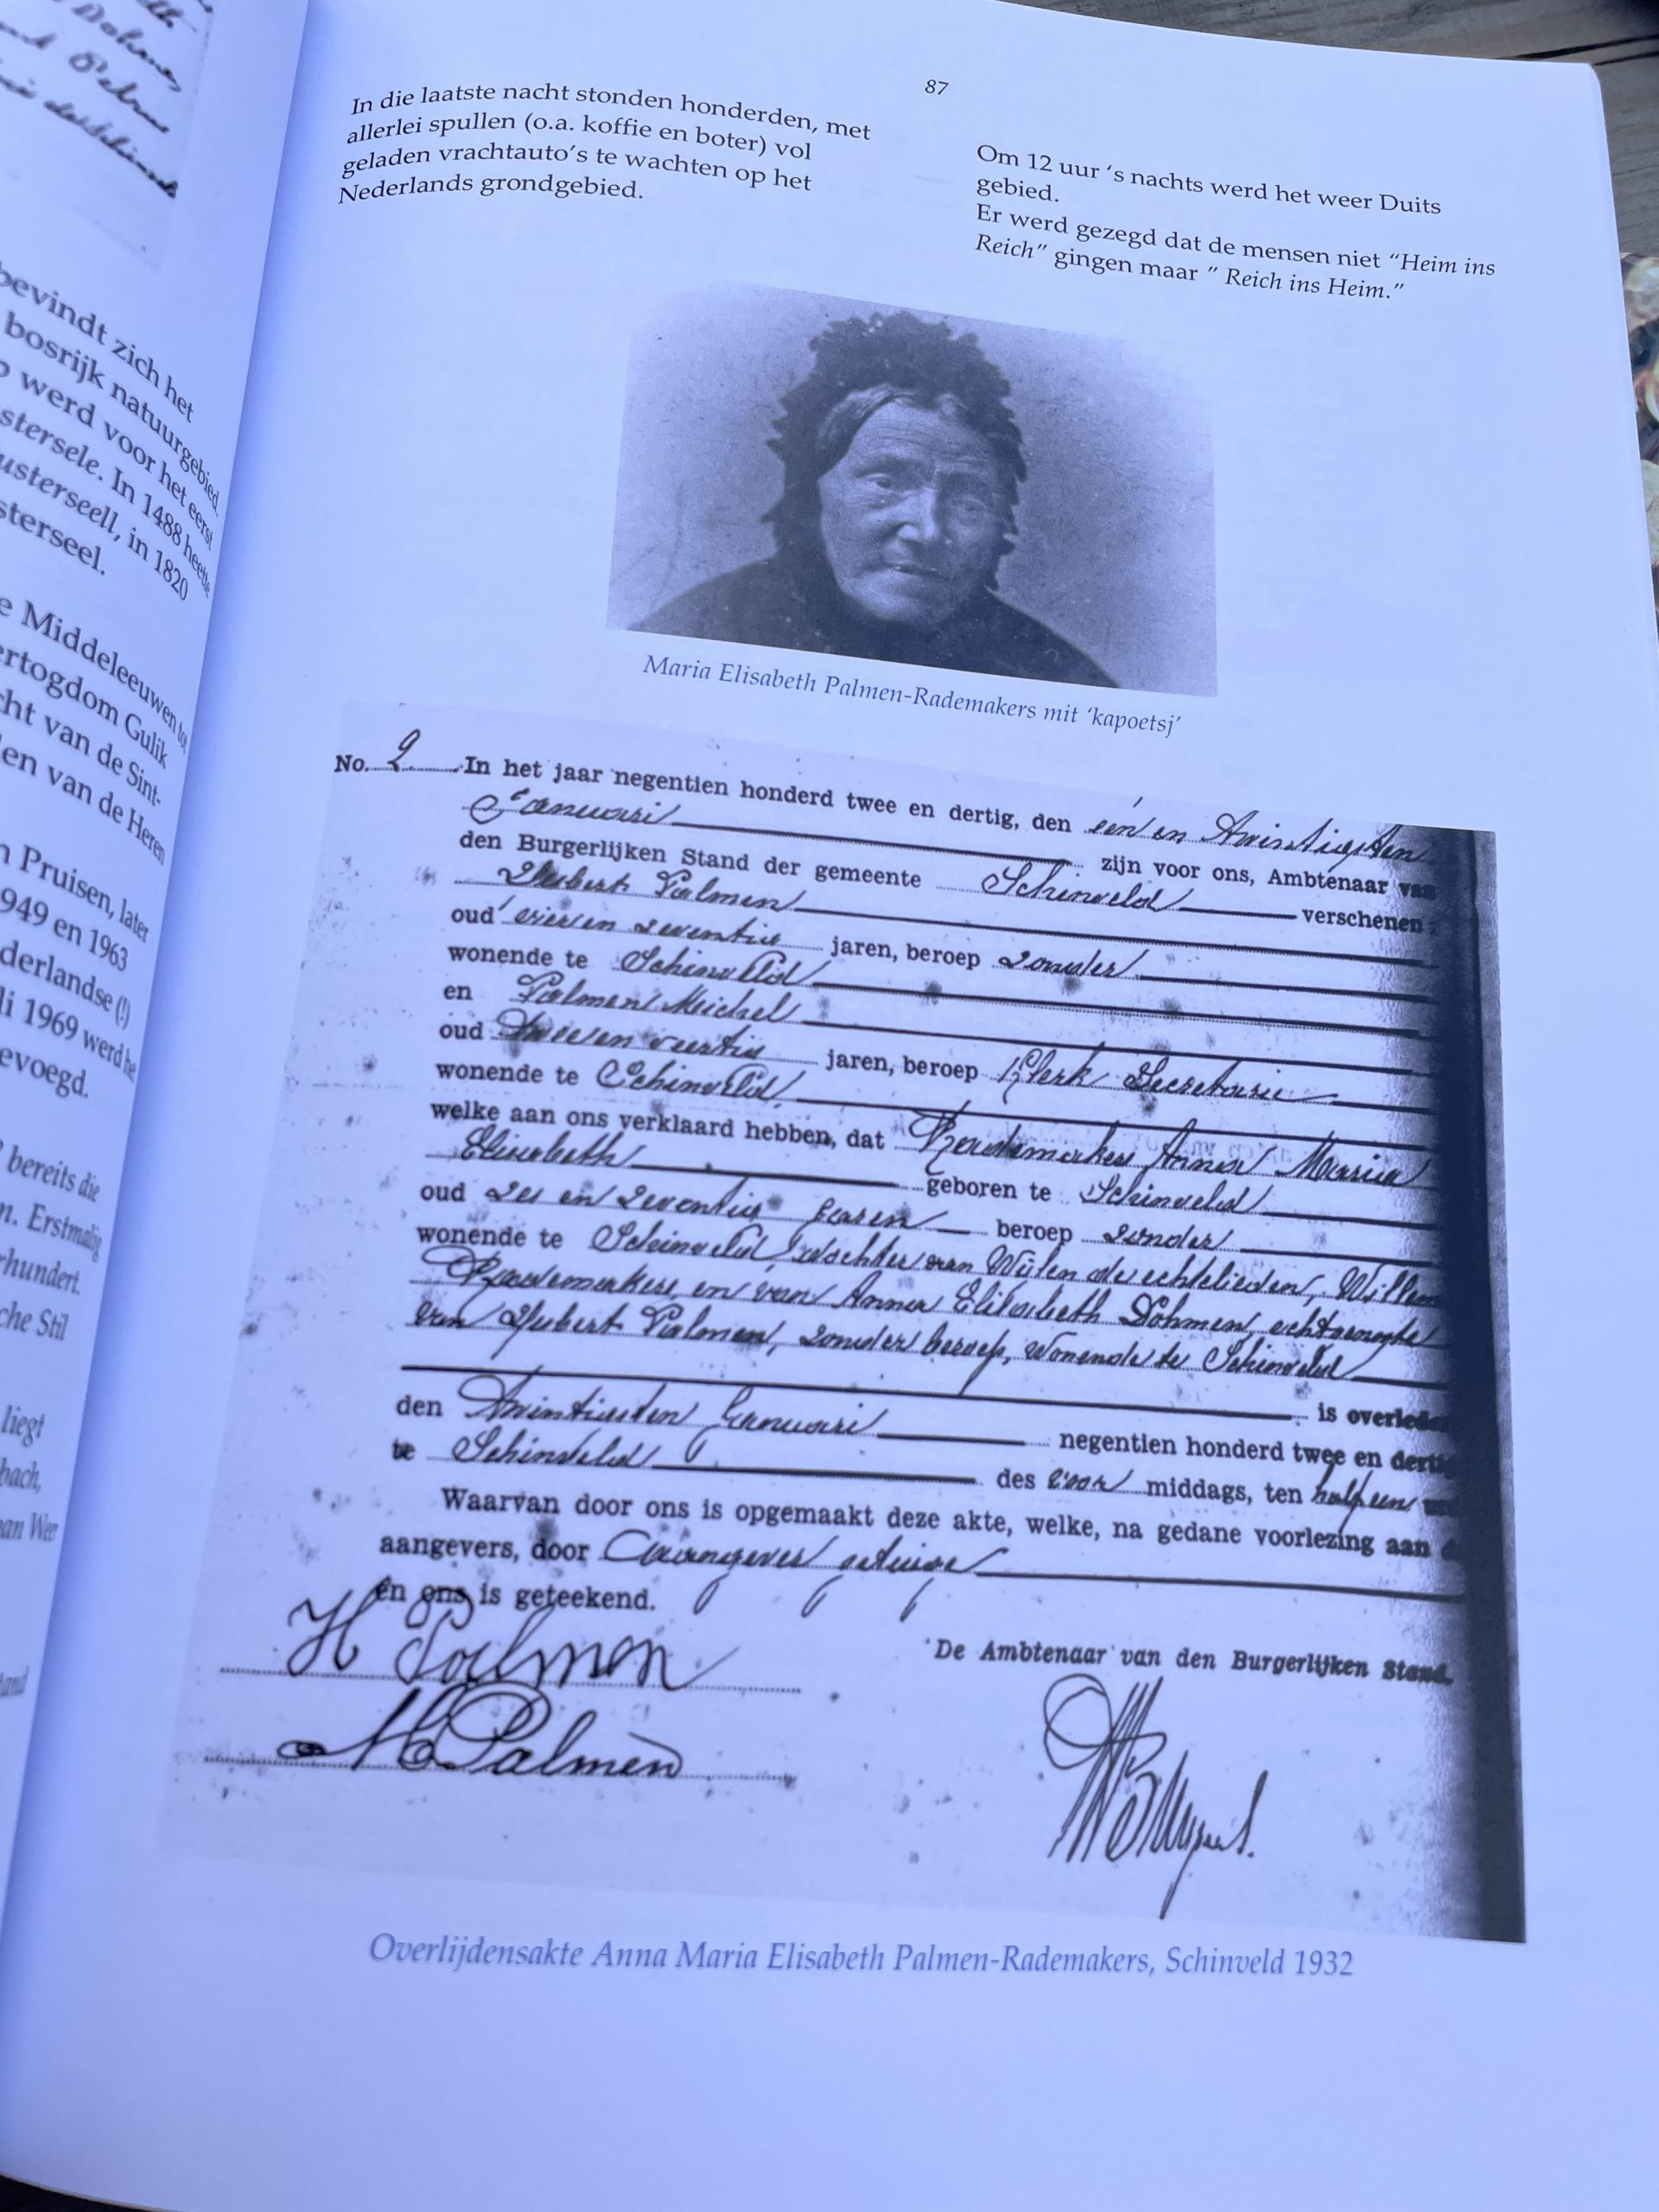 87
In die laatste nacht stonden honderden, met
allerlei spullen (o.a. koffie en boter) vol
geladen vrachtauto's te wachten op het
Nederlands grondgebied.
Om 12 uur 's nachts werd het weer Duits
gebied.
Er werd gezegd dat de mensen niet "Heim ins
Reich" gingen maar " Reich ins Heim."
bevindt zich het
bosrijk natuurgebied.
werd voor het eerst
stersele. In 1488 heette
usterseell, in 1820
sterseel.
e Middeleeuwen tot
ertogdom Gulik
cht van de Sint-
en van de Heren
n Pruisen, later
949 en 1963
derlandse (!)
li 1969 werd het
evoegd.
bereits die
n. Erstmalig
rhundert.
che Stil
liegt
bach,
Maria Elisabeth Palmen-Rademakers mit 'kapoetsj'
No. 2 In het jaar negentien honderd twee en dertig, den een en twintigsten
Januari zijn voor ons, Ambtenaar van
den Burgerlijken Stand der gemeente Schinveld verschenen:
Hubert Palmen
oud vier en zeventig jaren, beroep zonder
wonende te Schinveld
en Palmen Michel
oud twee en veertig jaren, beroep Klerk Secretarie
wonende te Schinveld,
welke aan ons verklaard hebben, dat Rademakers Anna Maria
Elisabeth geboren te Schinveld
oud zes en zeventig jaren beroep zonder
wonende te Schinveld, dochter van Wijlen de echtelieden, Willem
Rademakers en van Anna Elisabeth Dohmen, echtgenoote
van Hubert Palmen, zonder beroep, wonende te Schinveld
is overleden
den twintigsten Januari negentien honderd twee en dertig
te Schinveld des voor middags, ten half een
Waarvan door ons is opgemaakt deze akte, welke, na gedane voorlezing aan
aangevers, door Aangever getuige
en ons is geteekend.
H Palmen
De Ambtenaar van den Burgerlijken Stand.
M Palmen
Overlijdensakte Anna Maria Elisabeth Palmen-Rademakers, Schinveld 1932